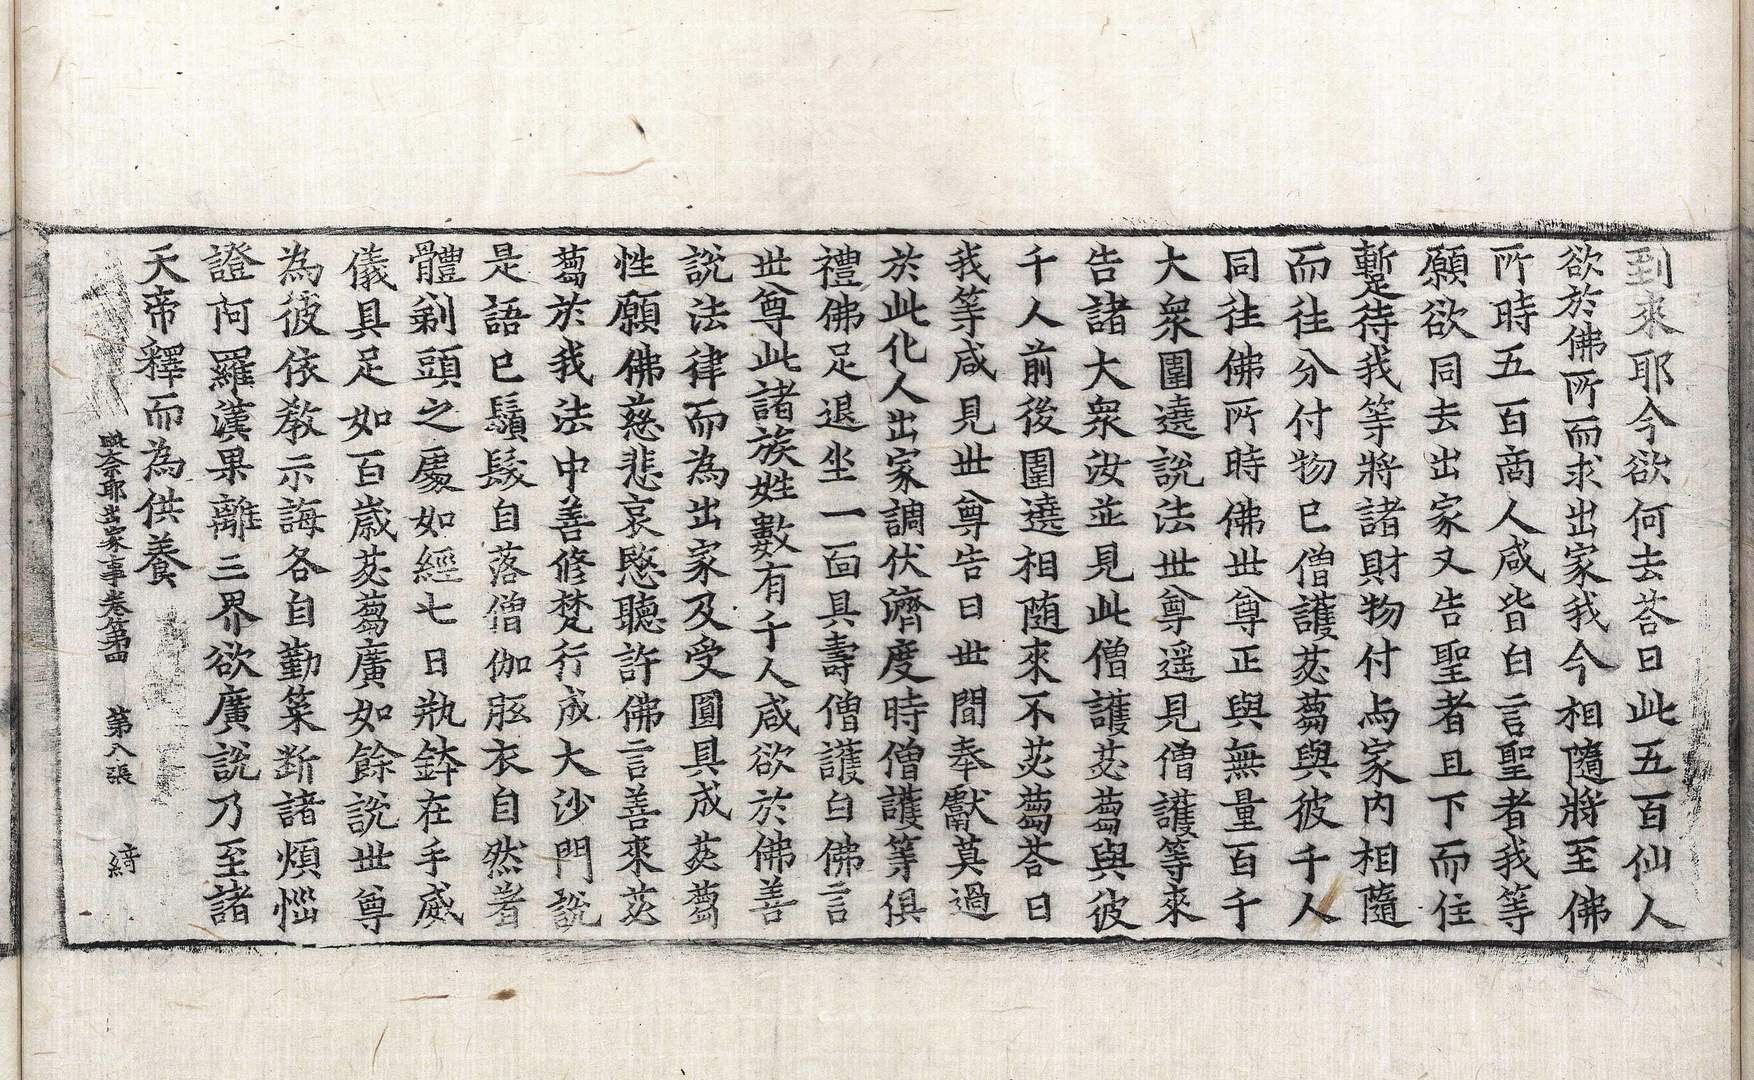 到來耶今欲何去荅曰此五百仙人
欲於佛所而求出家我今相隨將至佛
所時五百商人咸皆白言聖者我等
願欲同去出家又告聖者且下而住
蹔待我等將諸財物付与家內相隨
而往分付物已僧護苾蒭與彼千人
同往佛所時佛世尊正與無量百千
大衆圍遶說法世尊遥見僧護等來
告諸大衆汝並見此僧護苾蒭與彼
千人前後圍遶相隨來不苾蒭荅曰
我等咸見世尊告曰世間奉獻莫過
於此化人出家調伏濟度時僧護等俱
禮佛足退坐一面具壽僧護白佛言
世尊此諸族姓數有千人咸欲於佛善
說法律而為出家及受圓具成苾蒭
性願佛慈悲哀愍聽許佛言善來苾
蒭於我法中善修梵行成大沙門說
是語已鬚髮自落僧伽胝衣自然著
體剃頭之處如經七日執鉢在手威
儀具足如百歲苾蒭廣如餘說世尊
為彼依教示誨各自勤策斷諸煩惱
證阿羅漢果離三界欲廣說乃至諸
天帝釋而為供養
毗奈耶出家事卷第四 第八張 綺